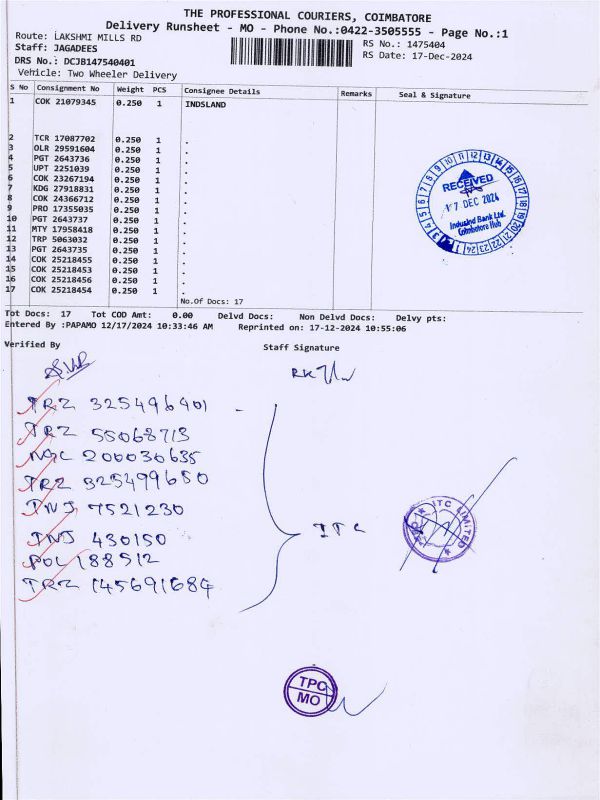 THE PROFESSIONAL COURIERS, COIMBATORE
Delivery Runsheet - MO - Phone No.:0422-3505555 - Page No.:1
Route: LAKSHMI MILLS RD
RS No.: 1475404
Staff: JAGADEES
RS Date: 17-Dec-2024
DRS No.: DCJB147540401
Vehicle: Two Wheeler Delivery
S No Consignment No Weight PCS Consignee Details Remarks Seal & Signature
1 COK 21079345 0.250 1 INDSLAND
2 TCR 17087702 0.250 1 .
3 OLR 29591604 0.250 1 .
4 PGT 2643736 0.250 1 .
5 UPT 2251039 0.250 1 .
6 COK 23267194 0.250 1 .
7 KDG 27918831 0.250 1 .
8 COK 24366712 0.250 1 .
9 PRO 17355035 0.250 1 .
10 PGT 2643737 0.250 1 .
11 MTY 17958418 0.250 1 .
12 TRP 5063032 0.250 1 .
13 PGT 2643735 0.250 1 .
14 COK 25218455 0.250 1 .
15 COK 25218453 0.250 1 .
16 COK 25218456 0.250 1 .
17 COK 25218454 0.250 1 .
No.Of Docs: 17
RECEIVED
17 DEC 2024
Indusind Bank Ltd.
Coimbatore Hub
Tot Docs: 17 Tot COD Amt: 0.00 Delvd Docs: Non Delvd Docs: Delvy pts:
Entered By :PAPAMO 12/17/2024 10:33:46 AM Reprinted on: 17-12-2024 10:55:06
Verified By Staff Signature
TRZ 325496401
TRZ 55068713
NGC 200030635
TRZ 325499650
TNJ 7521230
TNJ 430150
POL 188512
TRZ 145691684
ITC
ITC LIMITED
TPC
MO